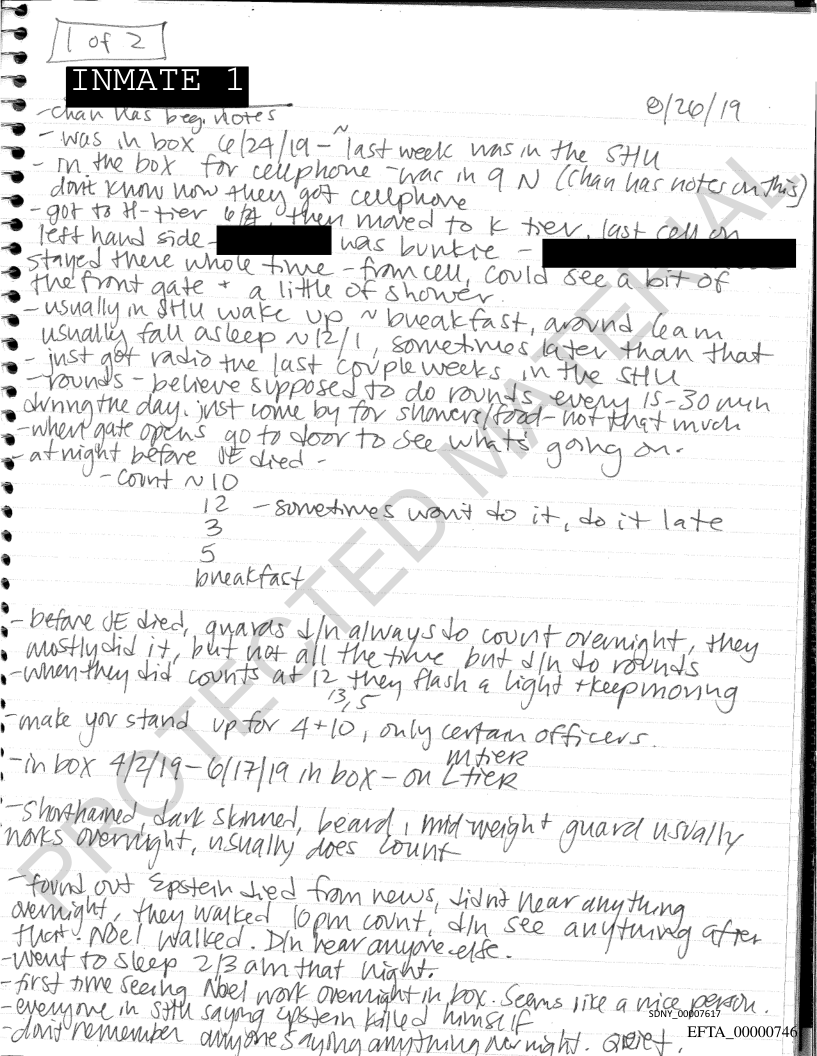 1 of 2
INMATE 1
8/26/19
- Chan has beg. notes
- was in box 6/24/19 - ~last week was in the SHU
- in the box for cellphone - was in 9 N (Chan has notes on this)
dont know how they got cellphone
- got to H-tier 6/24, then moved to K tier, last cell on
left hand side - was bunkie -
stayed there whole time - from cell, could see a bit of
the front gate + a little of shower.
- usually in SHU wake up ~ breakfast, around 6am
usually fall asleep ~12/1, sometimes later than that
- just got radio the last couple weeks in the SHU
- rounds - believe supposed to do rounds every 15-30 min
during the day. just come by for showers/food - not that much
- when gate opens go to door to see what's going on.
- at night before JE died -
- count ~10
12 - sometimes won't do it, do it late
3
5
breakfast
- before JE died, guards d/n always do count overnight, they
mostly did it, but not all the time but d/n do rounds
- when they did counts at 12 they flash a light + keep moving
13, 5
- make you stand up for 4+10, only certain officers.
M tier
- in box 4/2/19 - 6/17/19 in box - on L tier
- Shorthaired, dark skinned, beard, mid weight guard usually
works overnight, usually does count
- found out Epstein died from news, didnt hear anything
overnight, they walked 10pm count, d/n see anything after
that. Noel walked. D/n hear anyone else.
- went to sleep 2/3 am that night.
- first time seeing Noel work overnight in box. Seems like a nice person.
- everyone in SHU saying Epstein killed himself
- dont remember anyone saying anything overnight. Quiet.
PROTECTED MATERIAL
SDNY_00007617
EFTA_00000746